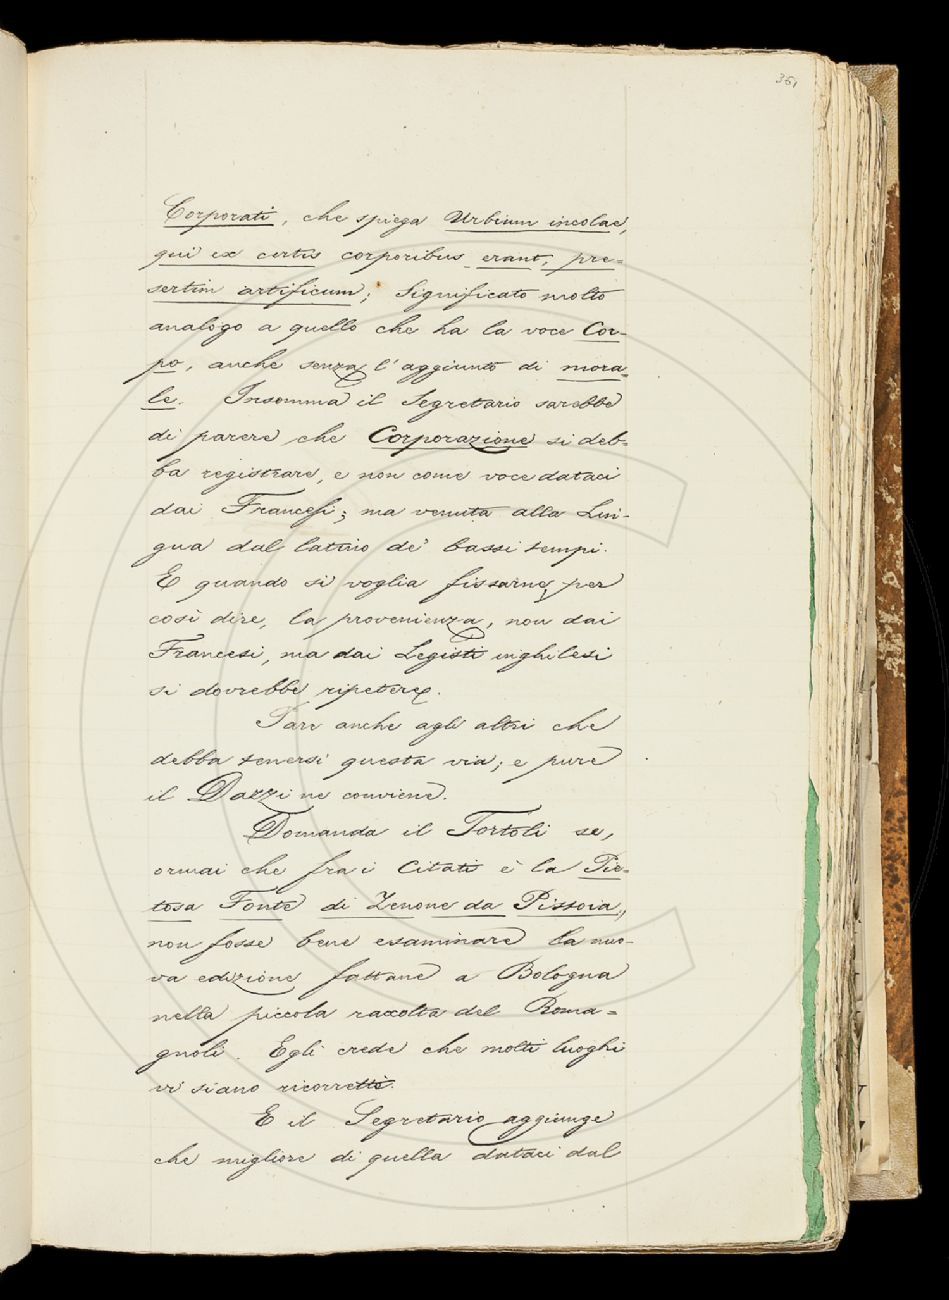 361
Corporati, che spiega Urbium incolae,
qui ex certis corporibus erant, pre=
sertim artificum; Significato molto
analogo a quello che ha la voce Cor-
po, anche senza l'aggiunto di mora=
le. Insomma il Segretario sarebbe
di parere che Corporazione si deb=
ba registrare, e non come voce dataci
dai Francesi; ma venuta alla Lin-
gua dal latino de' bassi tempi.
E quando si voglia fissarne, per
così dire, la provenienza, non dai
Francesi, ma dai Legisti inghilesi
si dovrebbe ripetere.
Pare anche agli altri che
debba tenersi questa via; e pure
il Dazzi ne conviene.
Domanda il Tortoli se,
ormai che fra i Citati è la Pie=
tosa Fonte di Zenone da Pistoia,
non fosse bene esaminare la nuo-
va edizione fattane a Bologna
nella piccola raccolta del Roma=
gnoli. Egli crede che molti luoghi
vi siano ricorretti.
E il Segretario aggiunge
che migliore di quella dataci dal